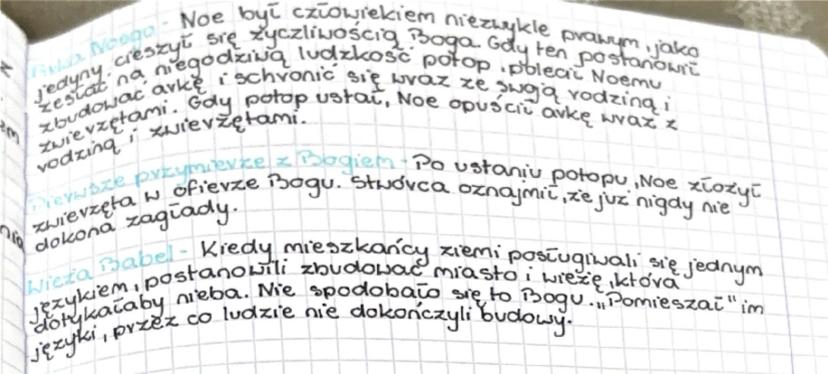 Arka Noego - Noe był człowiekiem niezwykle prawym, jako
jedyny cieszył się życzliwością Boga. Gdy ten postanowił
zesłać na niegodziwą ludzkość potop, polecił Noemu
zbudować arkę i schronić się wraz ze swoją rodziną i
zwierzętami. Gdy potop ustał, Noe opuścił arkę wraz z
rodziną i zwierzętami.
Pierwsze przymierze z Bogiem - Po ustaniu potopu, Noe złożył
zwierzęta w ofierze Bogu. Stwórca oznajmił, że już nigdy nie
dokona zagłady.
Wieża Babel - Kiedy mieszkańcy ziemi posługiwali się jednym
językiem, postanowili zbudować miasto i wieżę, która
dotykałaby nieba. Nie spodobało się to Bogu. „Pomieszał" im
języki, przez co ludzie nie dokończyli budowy.